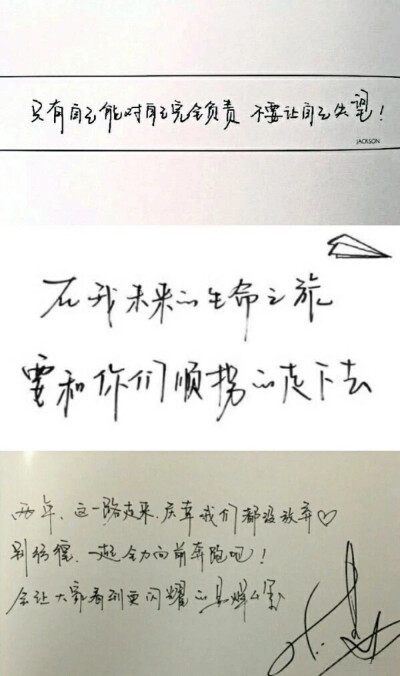 只有自己能对自己完全负责 不要让自己失望！
JACKSON
在我未来的生命之旅
要和你们顺拐的走下去
两年，这一路走来，庆幸我们都没放弃♡
别彷徨，一起全力向前奔跑吧！
会让大家看到更闪耀的易烊千玺